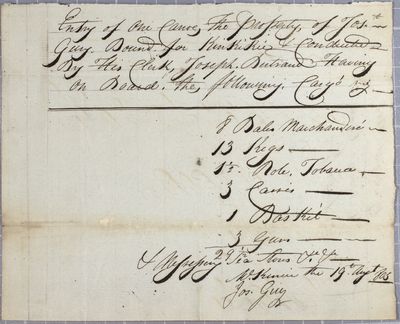 Entry of one Canoe, the Property, of Jos.
Guy. Bound for Kinkikie & Conducted
By His Clerk, Joseph Bertrand Having
on Board. the, following, Cargo viz
8 Bales Marchandise
13 Kegs
1 Role, Tobacca
3 Cassis
1 Baskit
3 Guns
29
the 19th Augt
Jos. Guy